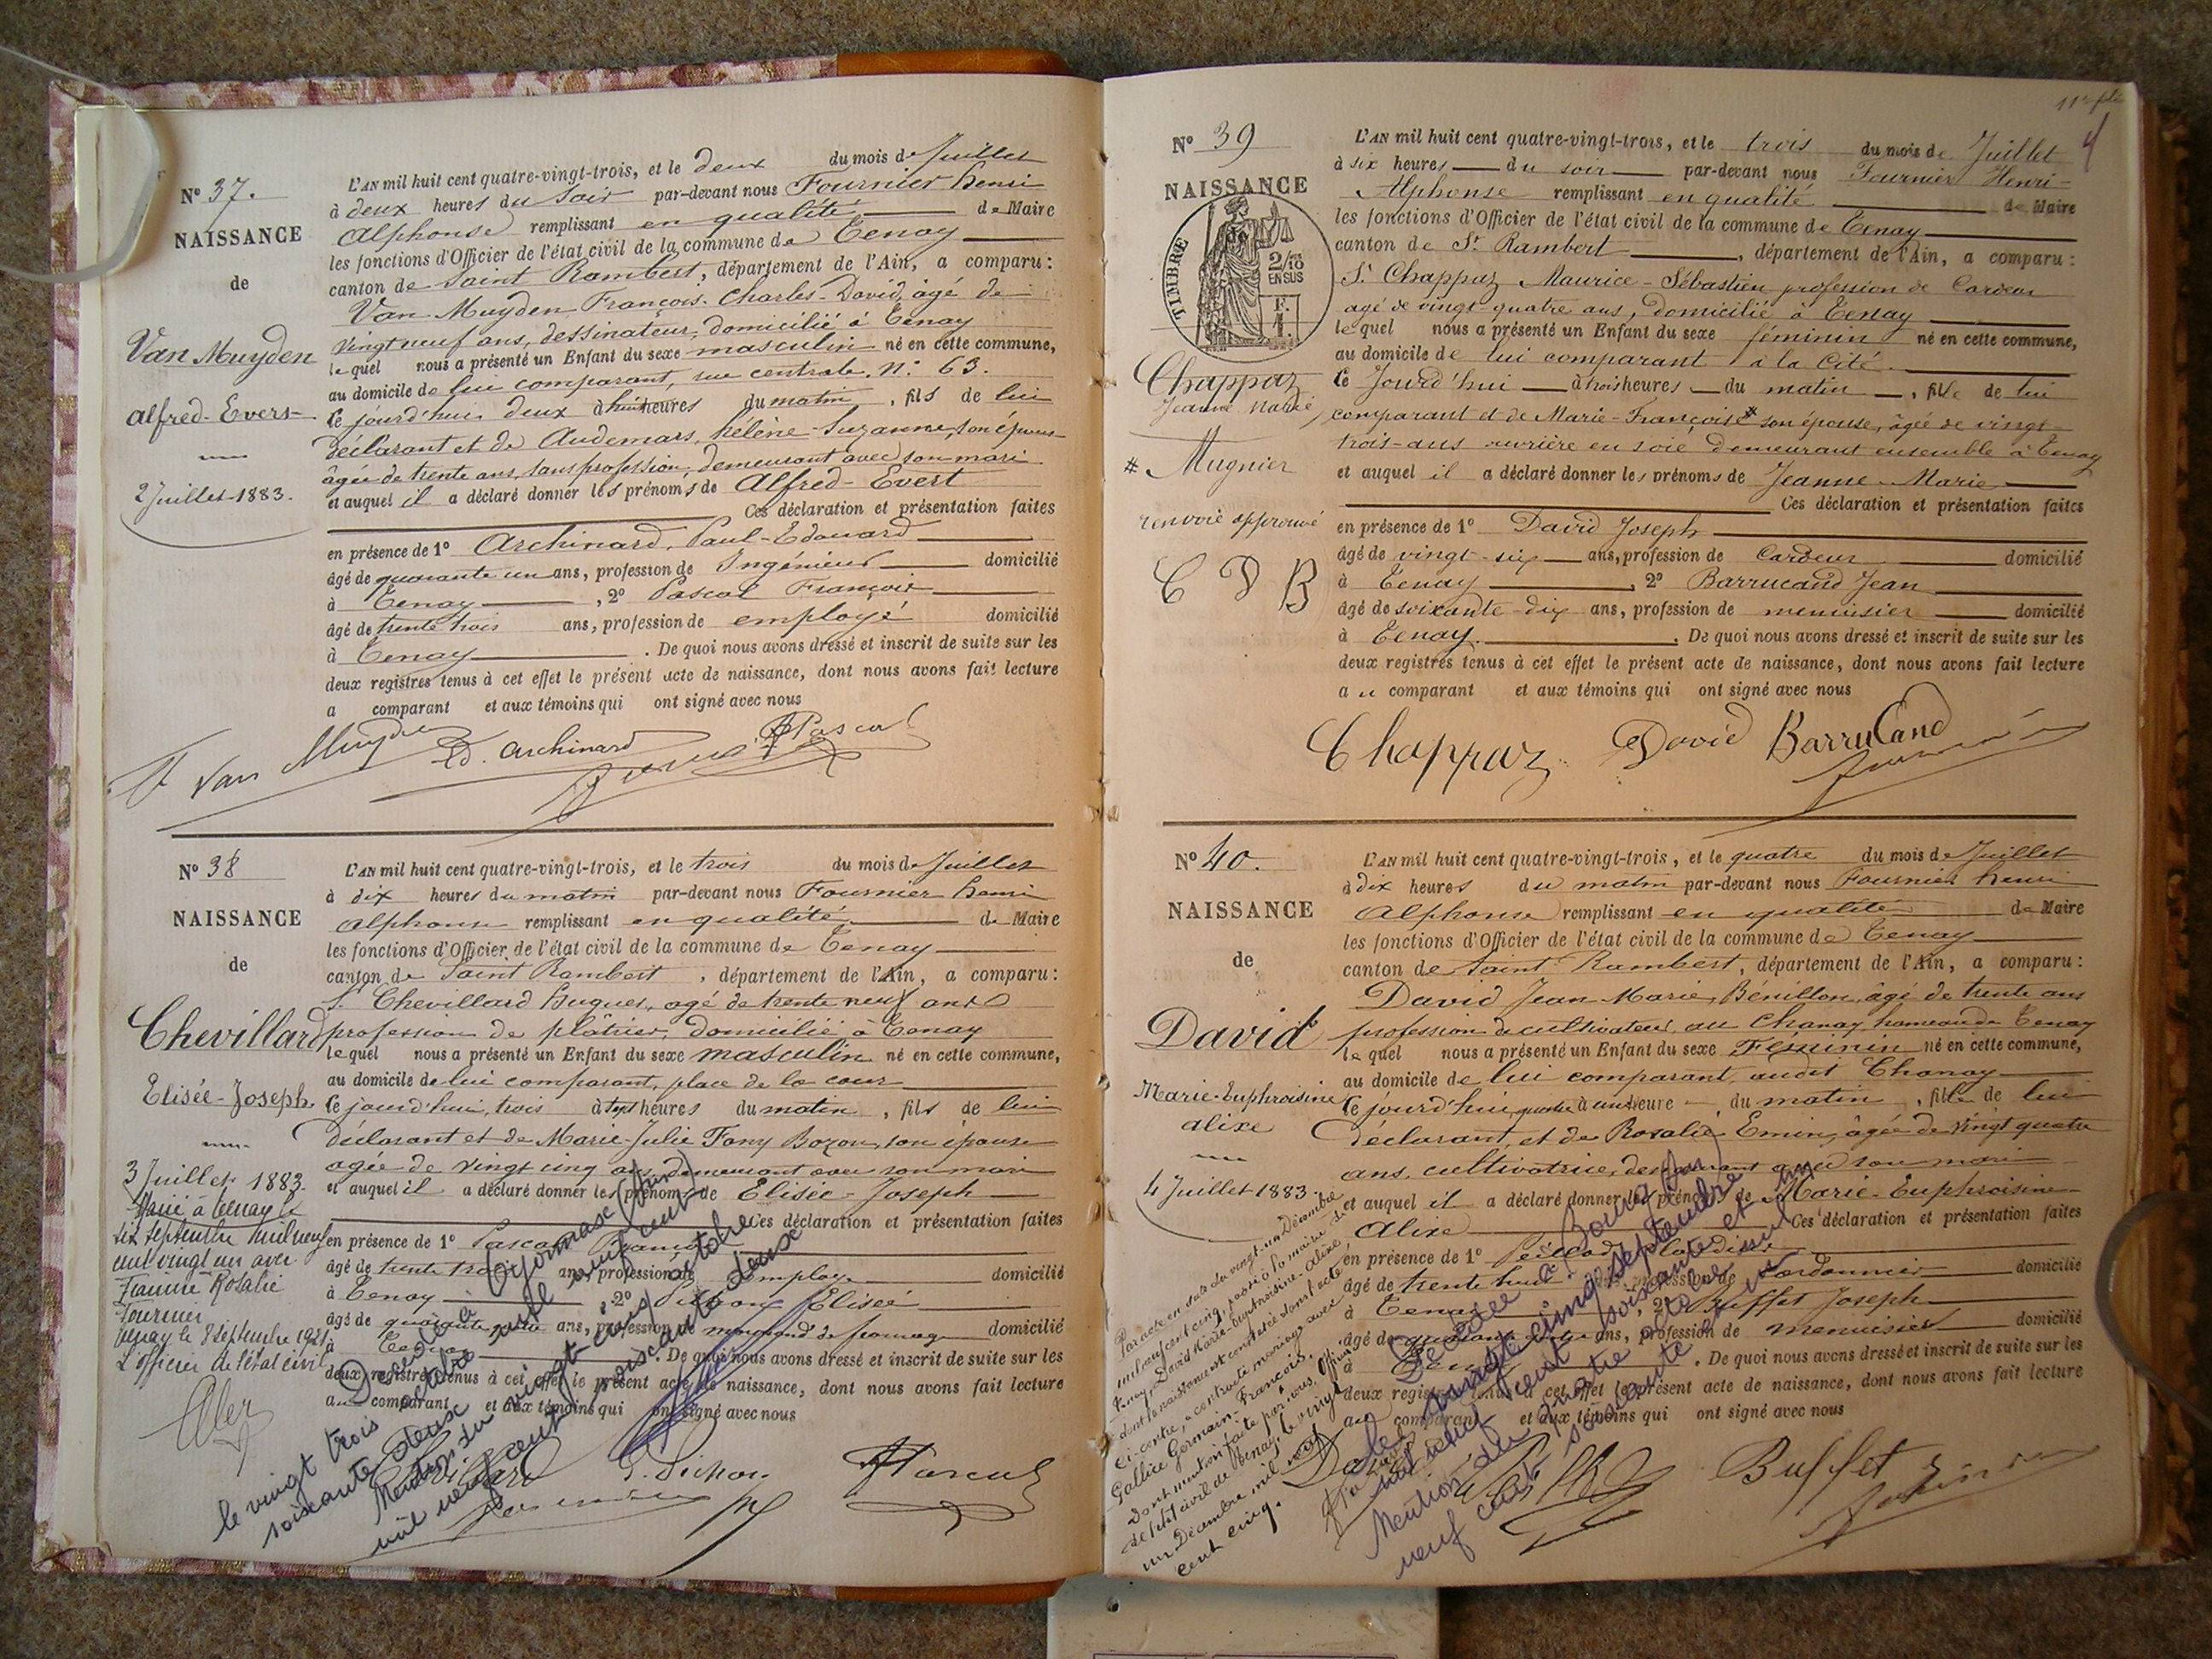 N° 37.
NAISSANCE
de
Van Muyden
Alfred-Evers
2 Juillet 1883.
L'AN mil huit cent quatre-vingt-trois, et le deux du mois de Juillet
à deux heures du soir par-devant nous Fournier henri
Alphonse remplissant en qualité de Maire
les fonctions d'Officier de l'état civil de la commune de Tenay
canton de Saint Rambert, département de l'Ain, a comparu :
Van Muyden François-Charles-David, âgé de
vingt neuf ans, dessinateur, domicilié à Tenay
lequel nous a présenté un Enfant du sexe masculin né en cette commune,
au domicile de lui comparant, rue centrale, N° 63.
Ce jourd'hui deux à huit heures du matin, fils de lui
déclarant et de Audemars, hélène-Suzanne, son épouse
âgée de trente ans, sans profession, demeurant avec son mari
et auquel il a déclaré donner les prénoms de Alfred-Evert
Ces déclaration et présentation faites
en présence de 1° Archinard, Paul-Edouard
âgé de quarante un ans, profession de Ingénieur domicilié
à Tenay, 2° Pascal François
âgé de trente trois ans, profession de employé domicilié
à Tenay. De quoi nous avons dressé et inscrit de suite sur les
deux registres tenus à cet effet le présent acte de naissance, dont nous avons fait lecture
a comparant et aux témoins qui ont signé avec nous
F Van Muyden Ed. Archinard Pascal
N° 38
NAISSANCE
de
Chevillard
Elisée-Joseph
3 Juillet 1883.
Marié à Tenay le
six septembre mil neuf
cent vingt un avec
Jeanne Rosalie
Fournier
Tenay le 8 septembre 1921
L'officier de l'état civil
L'AN mil huit cent quatre-vingt-trois, et le trois du mois de Juillet
à dix heures du matin par-devant nous Fournier henri
Alphonse remplissant en qualité de Maire
les fonctions d'Officier de l'état civil de la commune de Tenay
canton de Saint Rambert, département de l'Ain, a comparu :
Sr Chevillard Hugues, agé de trente neuf ans
profession de plâtrier, domicilié à Tenay
lequel nous a présenté un Enfant du sexe masculin né en cette commune,
au domicile de lui comparant, place de la cour
Ce jourd'hui, trois à heures du matin, fils de lui
déclarant et de Marie-Julie Fany Bozon, son épouse
agée de vingt cinq ans, demeurant avec son mari
et auquel il a déclaré donner les prénoms de Elisée-Joseph
Ces déclaration et présentation faites
en présence de 1° Pascal François
âgé de trente trois ans, profession de employé domicilié
à Tenay, 2° Elisée
âgé de quarante ans, profession de marchand de fromage domicilié
à Tenay. De quoi nous avons dressé et inscrit de suite sur les
deux registres tenus à cet effet le présent acte de naissance, dont nous avons fait lecture
au comparant et aux témoins qui ont signé avec nous
Décédé à Oyonnax (Ain)
le vingt trois octobre mil neuf cent
soixante deux
Mention du vingt-cinq octobre
mil neuf cent soixante deux
Chevillard Pascal
N° 39
NAISSANCE
TIMBRE
2/10
EN SUS
Chappaz
Jeanne Marie
# Mugnier
renvoie approuvé
C D B
L'AN mil huit cent quatre-vingt-trois, et le trois du mois de Juillet
à six heures du soir par-devant nous Fournier Henri-
Alphonse remplissant en qualité de Maire
les fonctions d'Officier de l'état civil de la commune de Tenay
canton de St Rambert, département de l'Ain, a comparu :
Sr Chappaz Maurice-Sébastien profession de Cardeur
agé de vingt-quatre ans, domicilié à Tenay
lequel nous a présenté un Enfant du sexe féminin né en cette commune,
au domicile de lui comparant à la Cité.
Ce Jourd'hui à trois heures du matin, fille de lui
comparant et de Marie-Françoise # son épouse, âgée de vingt-
trois-ans ouvrière en soie demeurant ensemble à Tenay
et auquel il a déclaré donner les prénoms de Jeanne-Marie
Ces déclaration et présentation faites
en présence de 1° David Joseph
âgé de vingt-six ans, profession de Cardeur domicilié
à Tenay, 2° Barrucand Jean
âgé de soixante-dix ans, profession de menuisier domicilié
à Tenay. De quoi nous avons dressé et inscrit de suite sur les
deux registres tenus à cet effet le présent acte de naissance, dont nous avons fait lecture
au comparant et aux témoins qui ont signé avec nous
Chappaz David Barrucand
N° 40.
NAISSANCE
de
David
Marie-Euphroisine
alixe
4 Juillet 1883.
L'AN mil huit cent quatre-vingt-trois, et le quatre du mois de Juillet
à dix heures du matin par-devant nous Fournier henri
Alphonse remplissant en qualité de Maire
les fonctions d'Officier de l'état civil de la commune de Tenay
canton de Saint Rambert, département de l'Ain, a comparu :
David Jean Marie, Bénillon, âgé de trente ans
profession de cultivateur au Chanay hameau de Tenay
lequel nous a présenté un Enfant du sexe Féminin né en cette commune,
au domicile de lui comparant, audit Chanay
Ce jourd'hui quatre à une heure du matin, fille de lui
déclarant, et de Rosalie Emin, âgée de vingt quatre
ans, cultivatrice, demeurant avec son mari
et auquel il a déclaré donner les prénoms de Marie-Euphroisine-
Alixe Ces déclaration et présentation faites
en présence de 1°
âgé de trente huit ans, profession de cordonnier domicilié
à Tenay, 2° Buffet Joseph
âgé de quarante ans, profession de menuisier domicilié
à Tenay. De quoi nous avons dressé et inscrit de suite sur les
deux registres tenus à cet effet le présent acte de naissance, dont nous avons fait lecture
au comparant et aux témoins qui ont signé avec nous
Par acte en date du vingt-un Décembre
mil neuf cent cinq, passé à la mairie de
Tenay, David Marie-Euphroisine-Alixe
dont la naissance est constatée dans l'acte
ci-contre, a contracté mariage avec
Gallice Germain-François.
Dont mention faite par nous, Officier
de l'état civil de Tenay, le vingt
un Décembre mil neuf
cent cinq.
Décédée à Bourg (Ain)
le vingt cinq septembre
mil neuf cent soixante et un
Mention du quatre octobre mil
neuf cent soixante et un
David Buffet